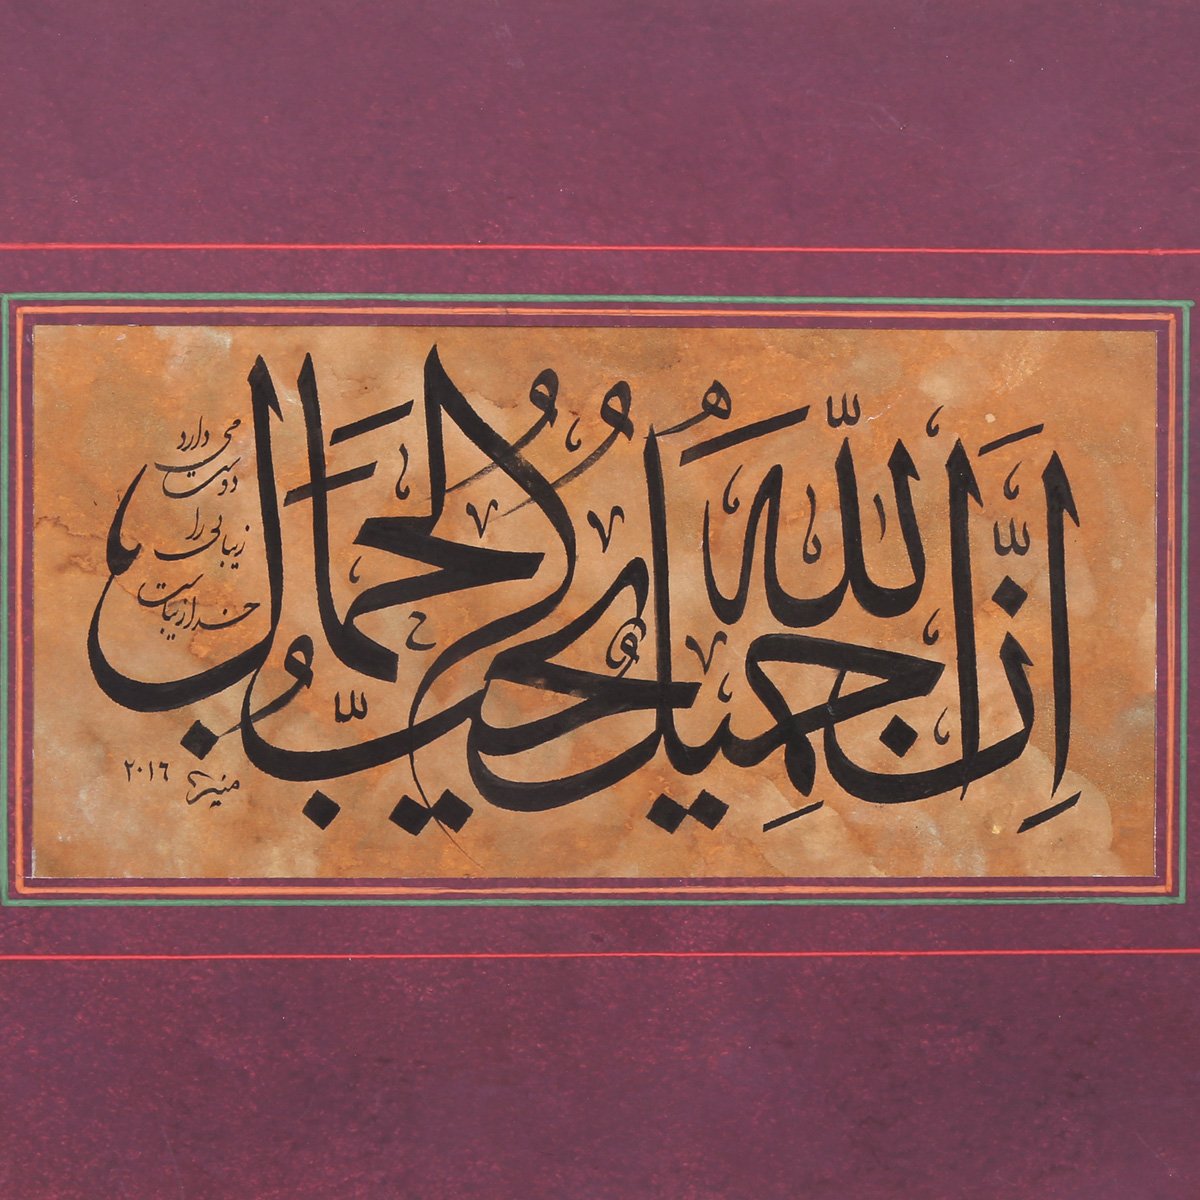 إِنَّ اللّٰهَ جَمِيلٌ يُحِبُّ الْجَمَالَ
خدا زیباست
زیبایی را
دوست
می دارد
منیره
۲۰۱۶